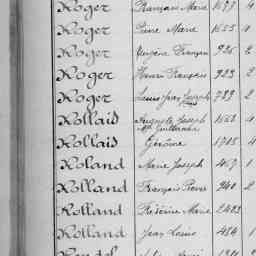 Roger François Marie 1673
Roger Pierre Marie 1655
Roger Eugène François 926 2
Roger Henri François 923 2
Roger Louis Jean Joseph 789 2
Rollaid Auguste Joseph 1562
Rollais Gérôme 1705 4
Roland Marie Joseph 467 1
Rolland François Pierre 940 2
Rolland Frédéric Marie 2483
Rolland Jean Louis 484 1